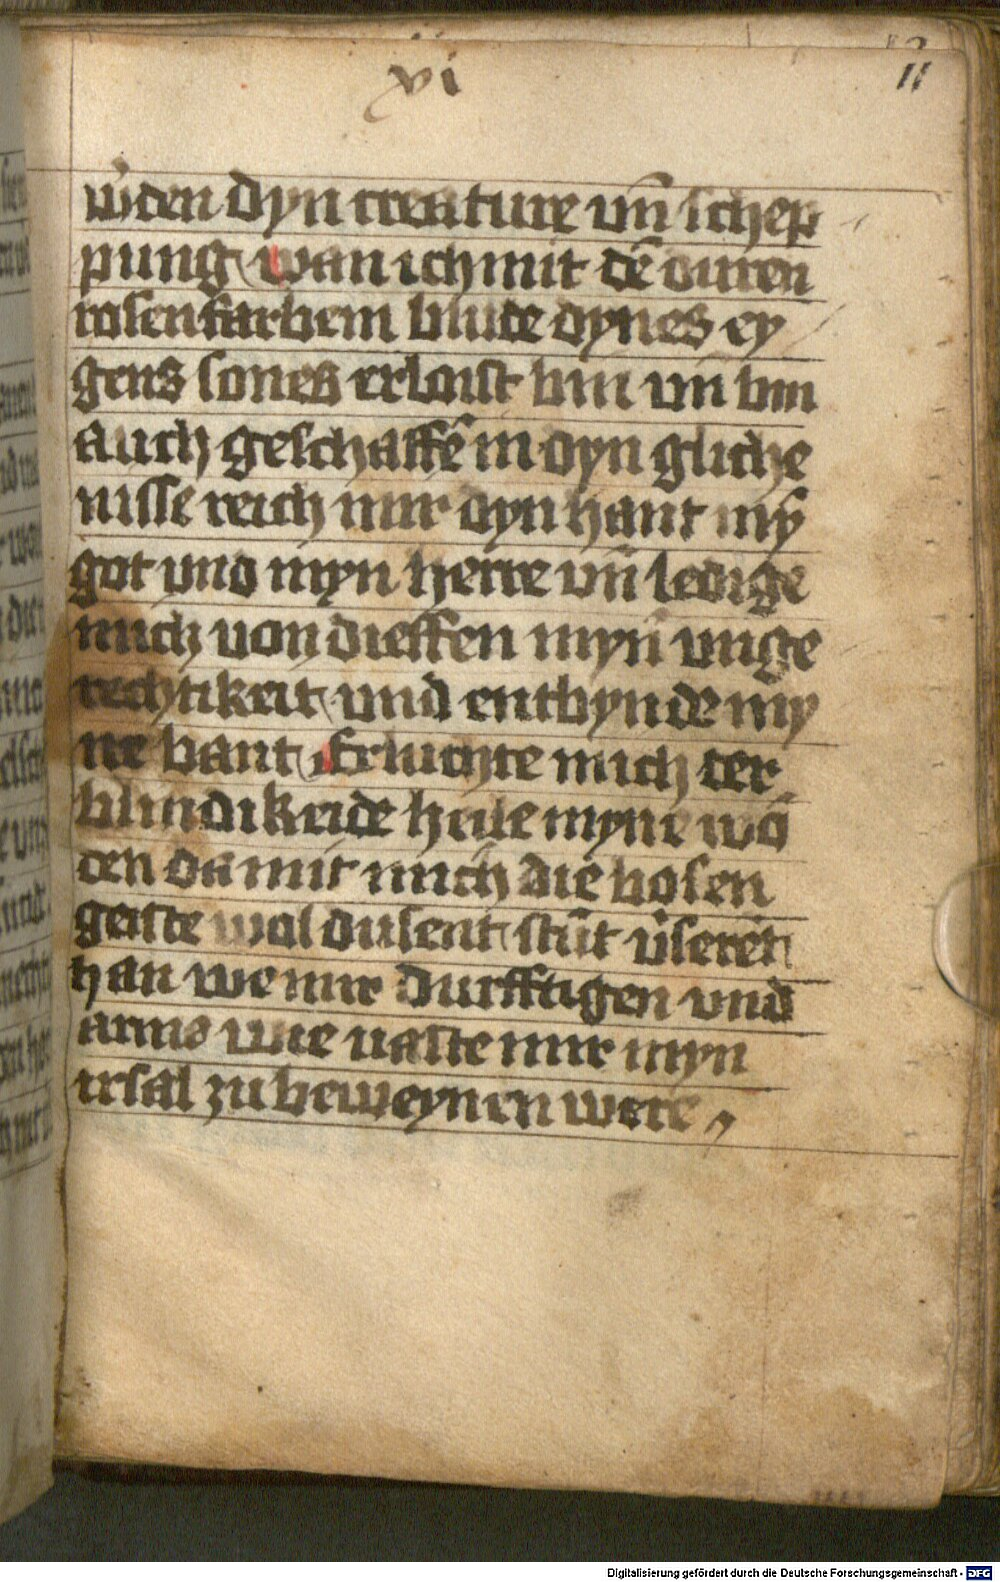 xi
11
wͤden dyn creature vn̄ schep
pung wan ich mit dē duren
rosenfarbem blude dynes ey
gens sones erloist bin vn̄ bin
auch geschaffē in dyn gliche
nisse reich mir dyn hant myn̄
got vnd myn herre vn̄ ledige
mich von dieffen myn̄ vnge
rechtikeit vnd entbynde my
ne bant Erluchte mich der
blindikeide heile myne wō
den da mit mich die bosen
geiste wol dusent stūt v̓seret
han we mir durfftigen vnd
armō wie vaste mir myn
irsal zu beweynen were
Digitalisierung gefördert durch die Deutsche Forschungsgemeinschaft - DFG